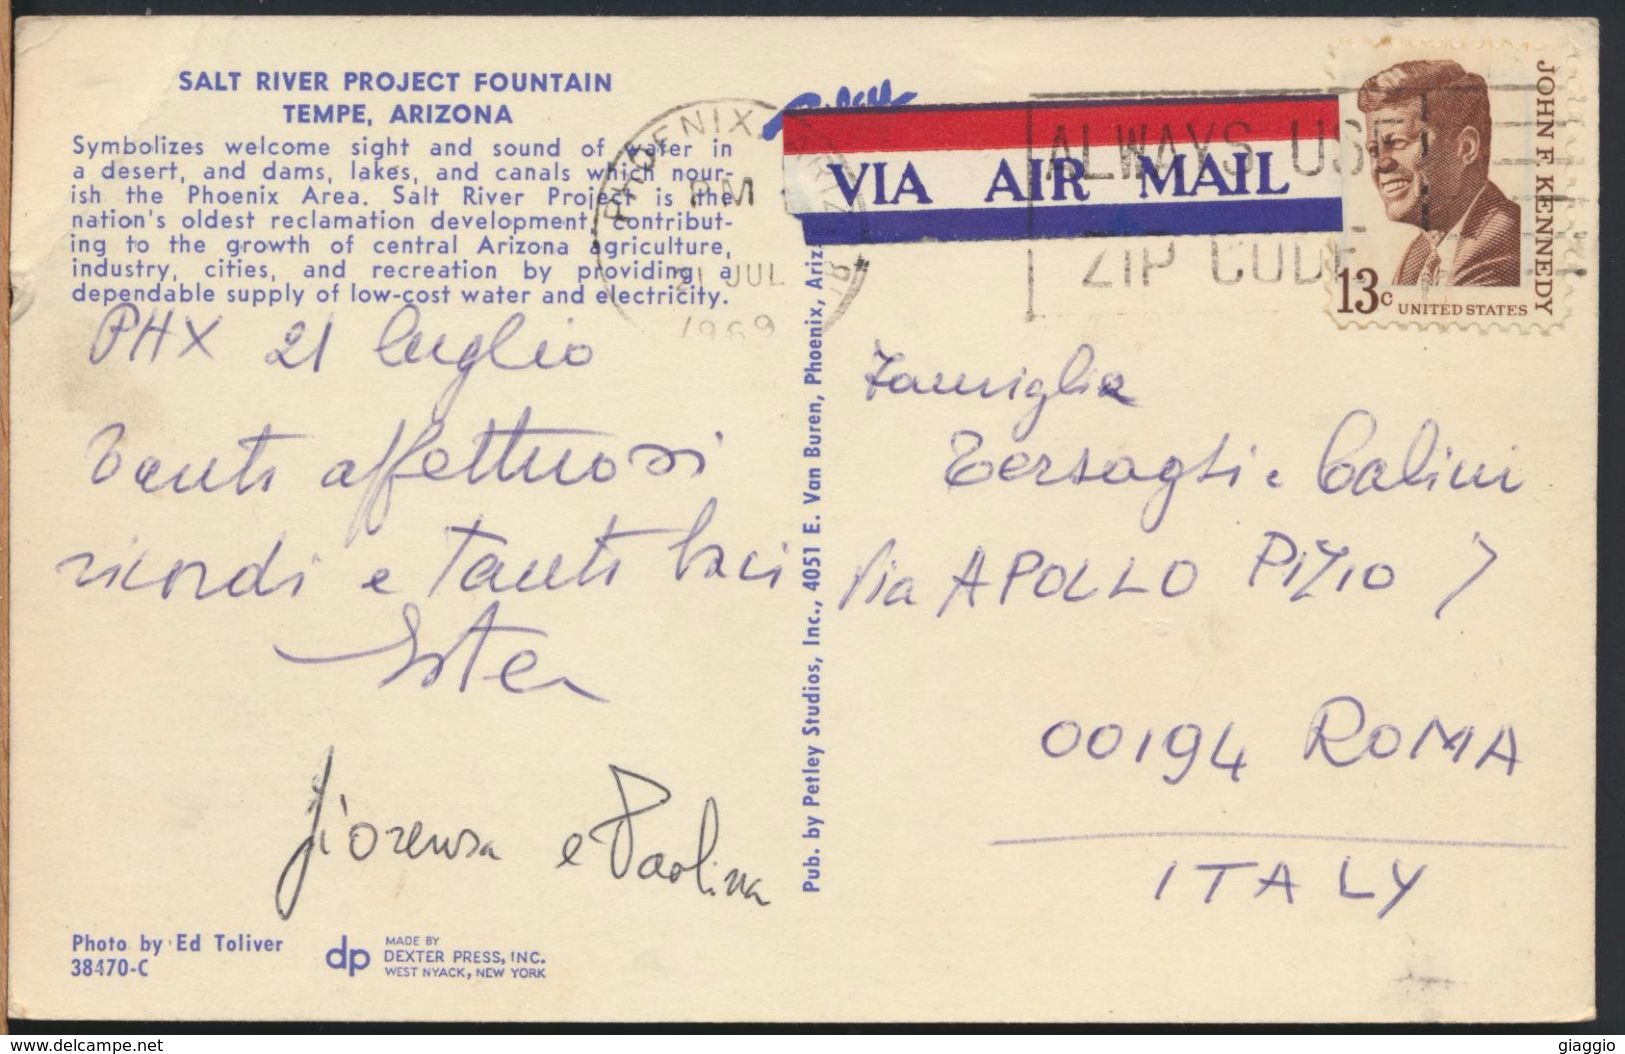 SALT RIVER PROJECT FOUNTAIN
TEMPE, ARIZONA
Symbolizes welcome sight and sound of water in
a desert, and dams, lakes, and canals which nour-
ish the Phoenix Area. Salt River Project is the
nation's oldest reclamation development, contribut-
ing to the growth of central Arizona agriculture,
industry, cities, and recreation by providing a
dependable supply of low-cost water and electricity.
PHOENIX, ARIZ
PM
21 JUL
1969
VIA AIR MAIL
ALWAYS USE
ZIP CODE
JOHN F. KENNEDY
13c UNITED STATES
PHX 21 luglio
Tanti affettuosi
ricordi e tanti baci
Ester
Fiorenza e Paolina
Pub. by Petley Studios, Inc., 4051 E. Van Buren, Phoenix, Ariz.
Famiglia
Tersaghi e Calini
Via APOLLO PIZIO 7
00194 ROMA
ITALY
Photo by Ed Toliver
38470-C
dp
MADE BY
DEXTER PRESS, INC.
WEST NYACK, NEW YORK
www.delcampe.net
giaggio